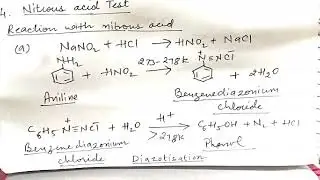 4. Nitrous acid Test
Reaction with nitrous acid
(a) NaNO₂ + HCl → HNO₂ + NaCl
NH₂ + HNO₂ 273-278K → N⁺≡NCl⁻ + 2H₂O
Aniline Benzenediazonium chloride
C₆H₅N⁺≡NCl⁻ + H₂O H⁺ >278K → C₆H₅OH + N₂ + HCl
Benzenediazonium chloride Phenol
Diazotisation.